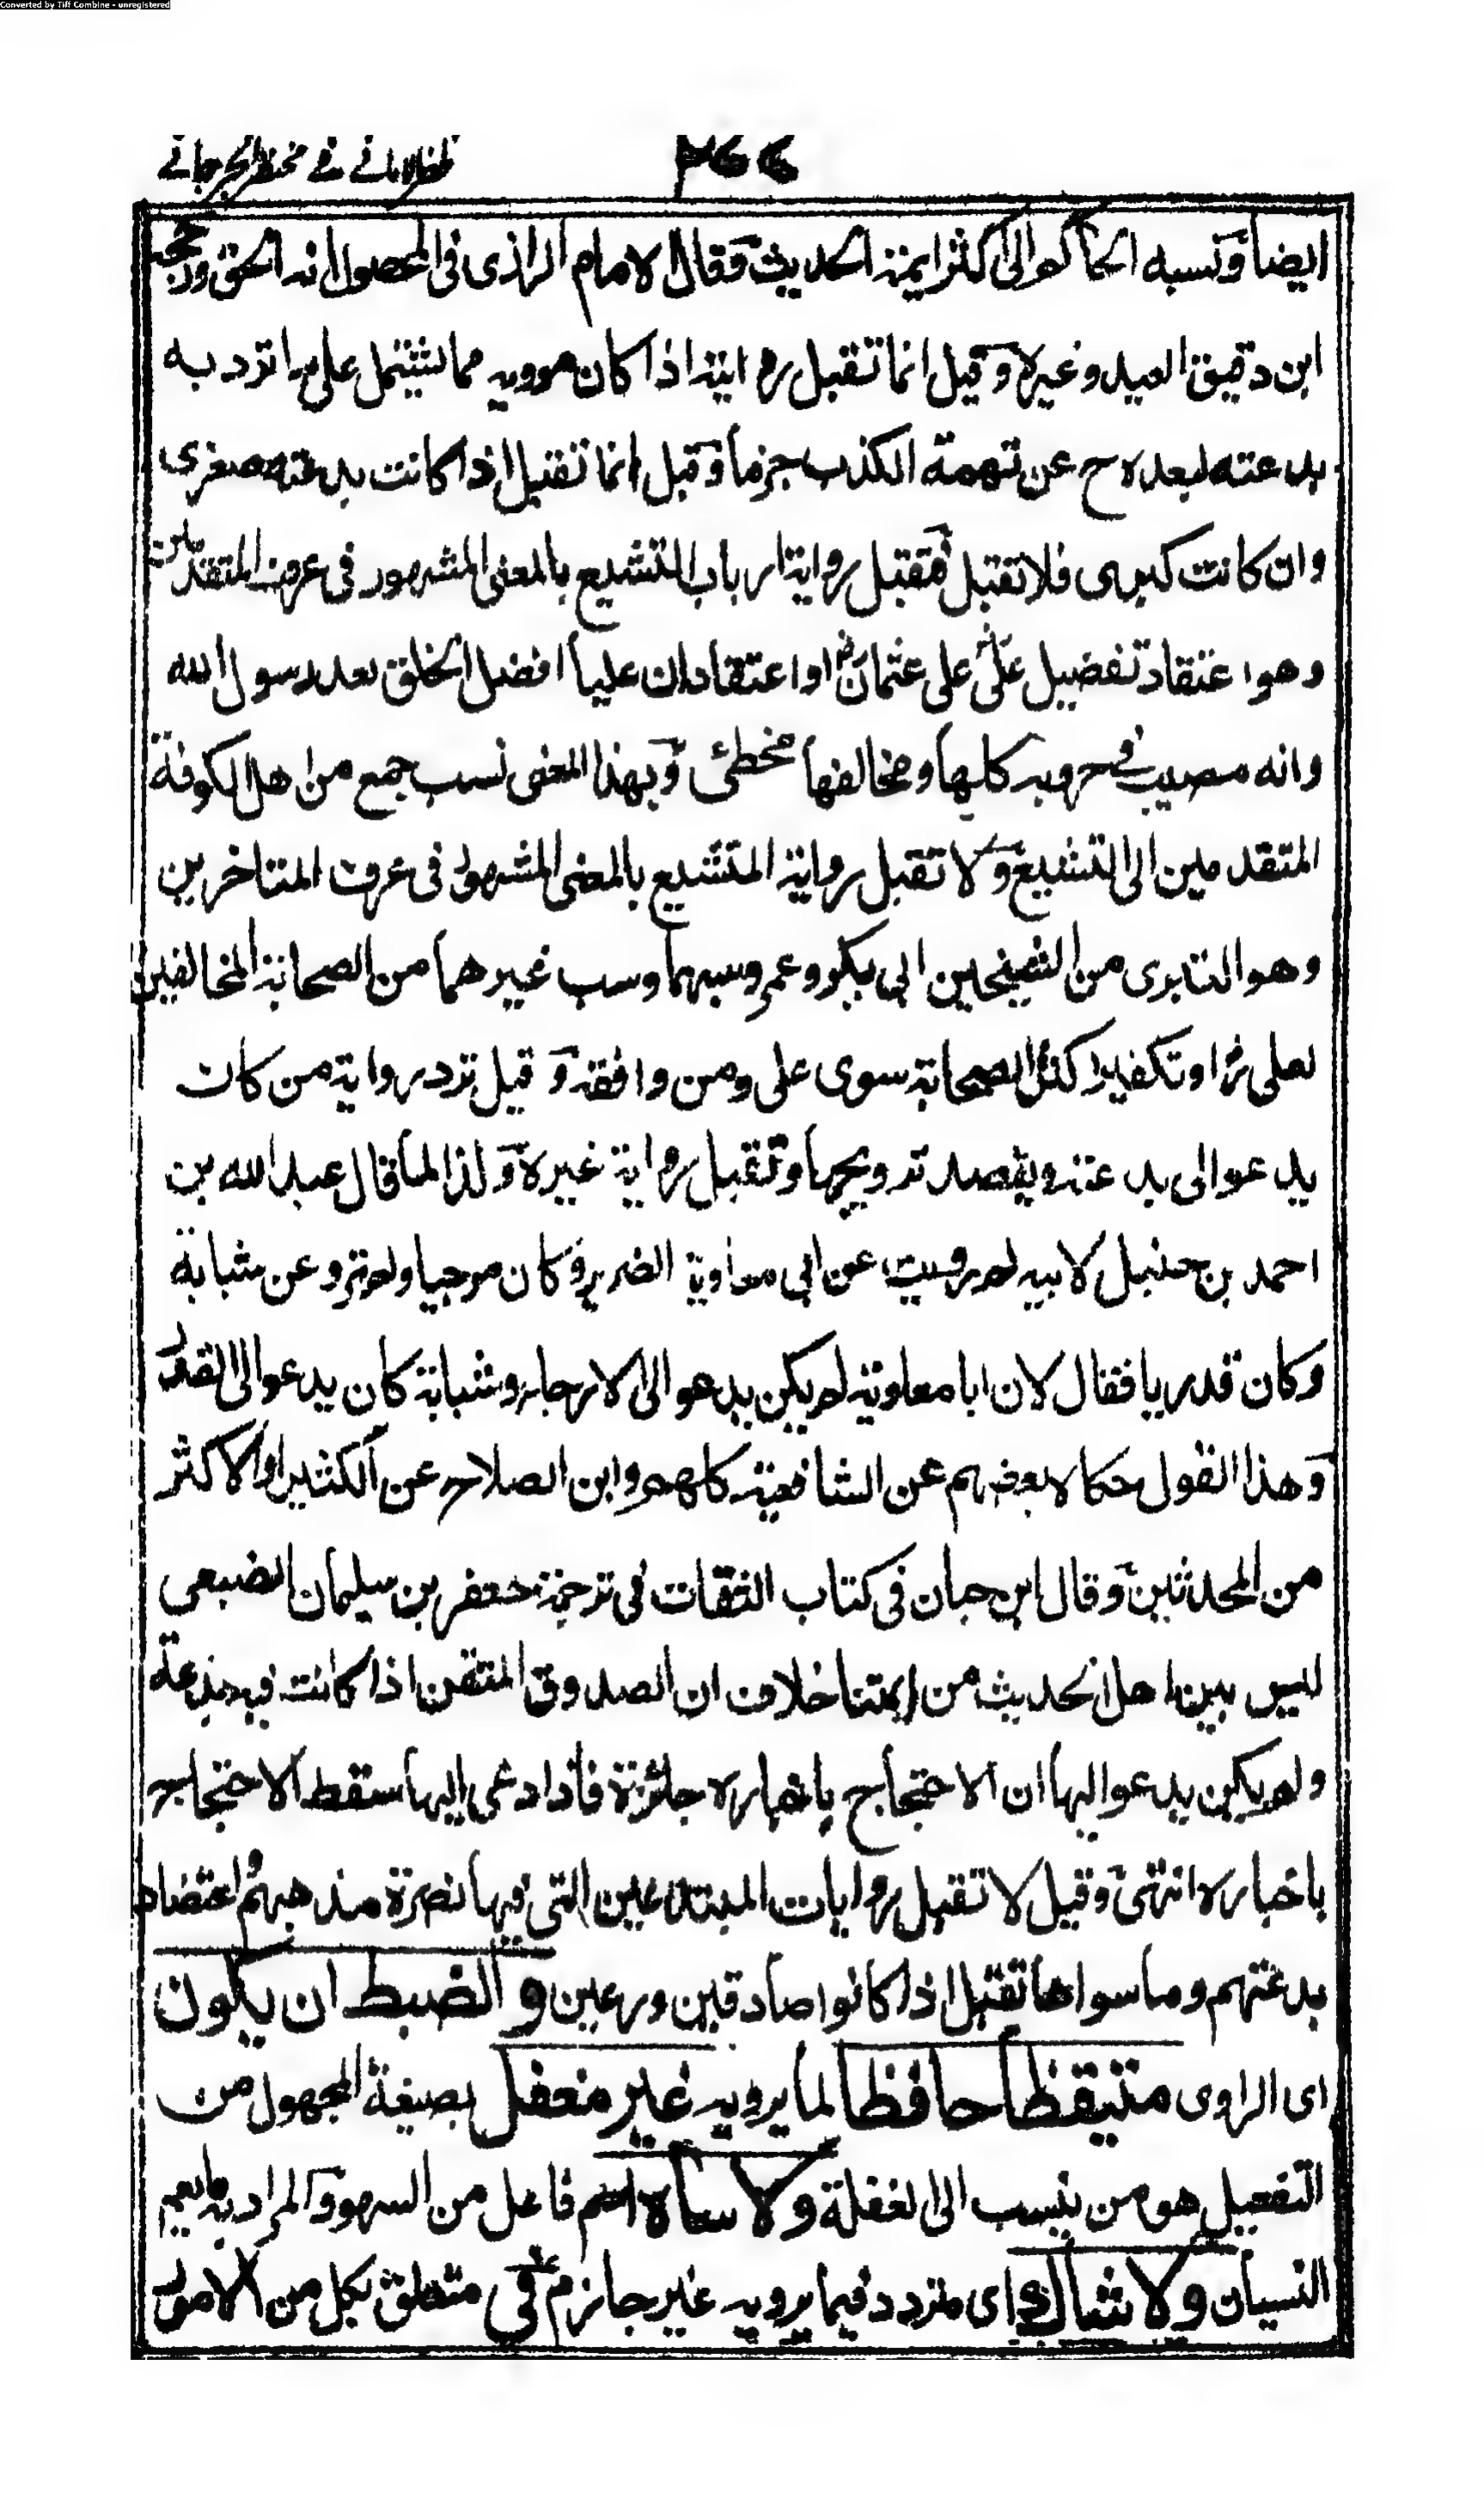 Converted by Tiff Combine - unregistered
ظفر الاماني في مختصر الجرجاني
٢٧٧
ايضا ونسبه الحاكم الى اكثر ايمة الحديث وقال الامام الرازي في المحصول انه الحق ورجحه
ابن دقيق العيد وغيره وقيل انما تقبل روايته اذا كان مرويه مما يشتمل على ما ترد به
بدعته لبعده ح عن تهمة الكذب جزما وقيل انما تقبل اذا كانت بدعته صغرى
وان كانت كبرى فلا تقبل فتقبل رواية ارباب التشيع بالمعنى المشهور في عرف المتقدمين
وهو اعتقاد تفضيل على على عثمان او اعتقاد ان عليا افضل الخلق بعد رسول الله
وانه مصيب في حروبه كلها ومخالفها مخطئ وبهذا المعنى نسب جمع من اهل الكوفة
المتقدمين الى التشيع ولا تقبل رواية المتشيع بالمعنى المشهور في عرف المتاخرين
وهو التبرى من الشيخين ابي بكر وعمر وسبهما وسب غيرهما من الصحابة المخالفين
لعلى او تكفير اكثر الصحابة سوى على ومن وافقه وقيل ترد رواية من كان
يدعو الى بدعته ويقصد ترويجها وتقبل رواية غيره ولذا لما قال عبد الله بن
احمد بن حنبل لابيه لم رويت عن ابي معاوية الضرير وكان مرجيا ولم ترو عن شبابة
وكان قدريا فقال لان ابا معاوية لم يكن يدعو الى الارجاء وشبابة كان يدعو الى القدر
وهذا القول حكاه بعضهم عن الشافعية كلهم وابن الصلاح عن الكثير او الاكثر
من المحدثين وقال ابن حبان في كتاب الثقات في ترجمة جعفر بن سليمان الضبعي
ليس بين اهل الحديث من ايمتنا خلاف ان الصدوق المتقن اذا كانت فيه بدعة
ولم يكن يدعو اليها ان الاحتجاج باخباره جائزة فاذا دعى اليها سقط الاحتجاج
باخباره انتهى وقيل لا تقبل روايات المبتدعين التى فيها نصرة مذهبهم اعتضاد
بدعتهم وما سواها تقبل اذا كانوا صادقين ورعين والضبط ان يكون
اى الراوى متيقظا حافظا لما يرويه غير مغفل بصيغة المجهول من
التفعيل هو من ينسب الى الغفلة ولا ساه اسم فاعل من السهو والمراد به ما يعم
النسيان ولا شاك اى متردد فيما يرويه غير جازم في متعلق بكل من الامور